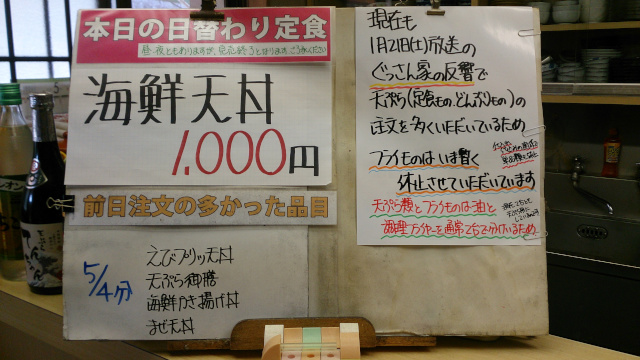 本日の日替わり定食
昼・夜ともありますが、売切れ終了となります ごう承ください
海鮮天丼
1,000円
前日注文の多かった品目
5/4分
えびプリッ天丼
天ぷら御膳
海鮮かき揚げ丼
まぜ天丼
現在も
1月21日(土)放送の
ぐっさん家の反響で
天ぷら(定食もの、どんぶりもの)の
注文を多くいただいているため
フライものはいま暫く
休止させていただいています
天ぷら類とフライものは油と
調理フライヤーを通常2台で分けているため